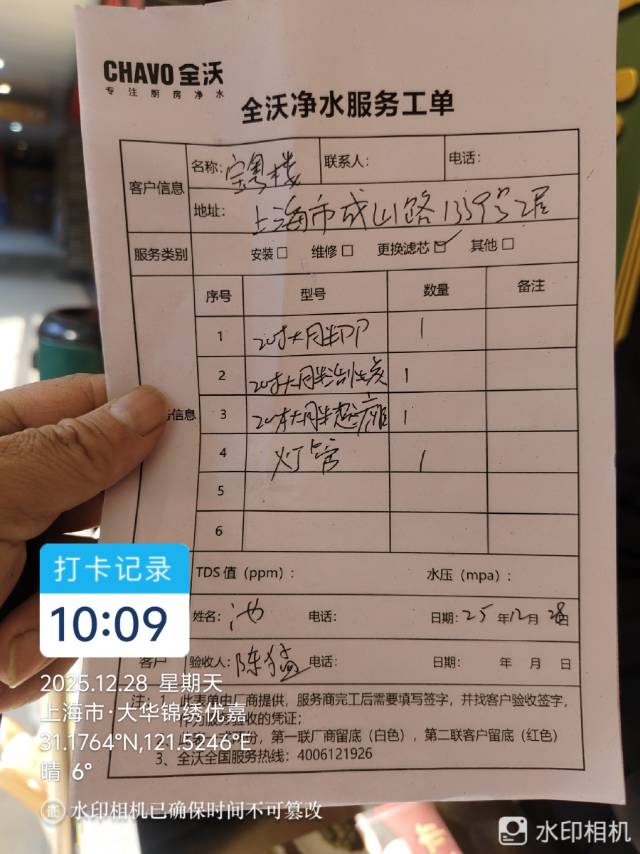 CHAVO 全沃
专注厨房净水
全沃净水服务工单
客户信息
名称：宝粤楼
联系人：
电话：
地址：上海市成山路1359号2层
服务类别
安装□ 维修□ 更换滤芯☑ 其他□
序号 型号 数量 备注
1 20寸大胖PP 1
2 20寸大胖活性炭 1
信息
3 20寸大胖超滤 1
4 灯管 1
5
6
TDS 值（ppm）： 水压（mpa）：
姓名：池 电话： 日期：25年12月28日
客户 验收人：陈猛 电话： 日期： 年 月 日
注：1、此表单由厂商提供，服务商完工后需要填写签字，并找客户验收签字，
作为服务验收的凭证；
份，第一联厂商留底（白色），第二联客户留底（红色）
3、全沃全国服务热线：4006121926
打卡记录
10:09
2025.12.28 星期天
上海市·大华锦绣优嘉
31.1764°N,121.5246°E
晴 6°
证 水印相机已确保时间不可篡改
水印相机